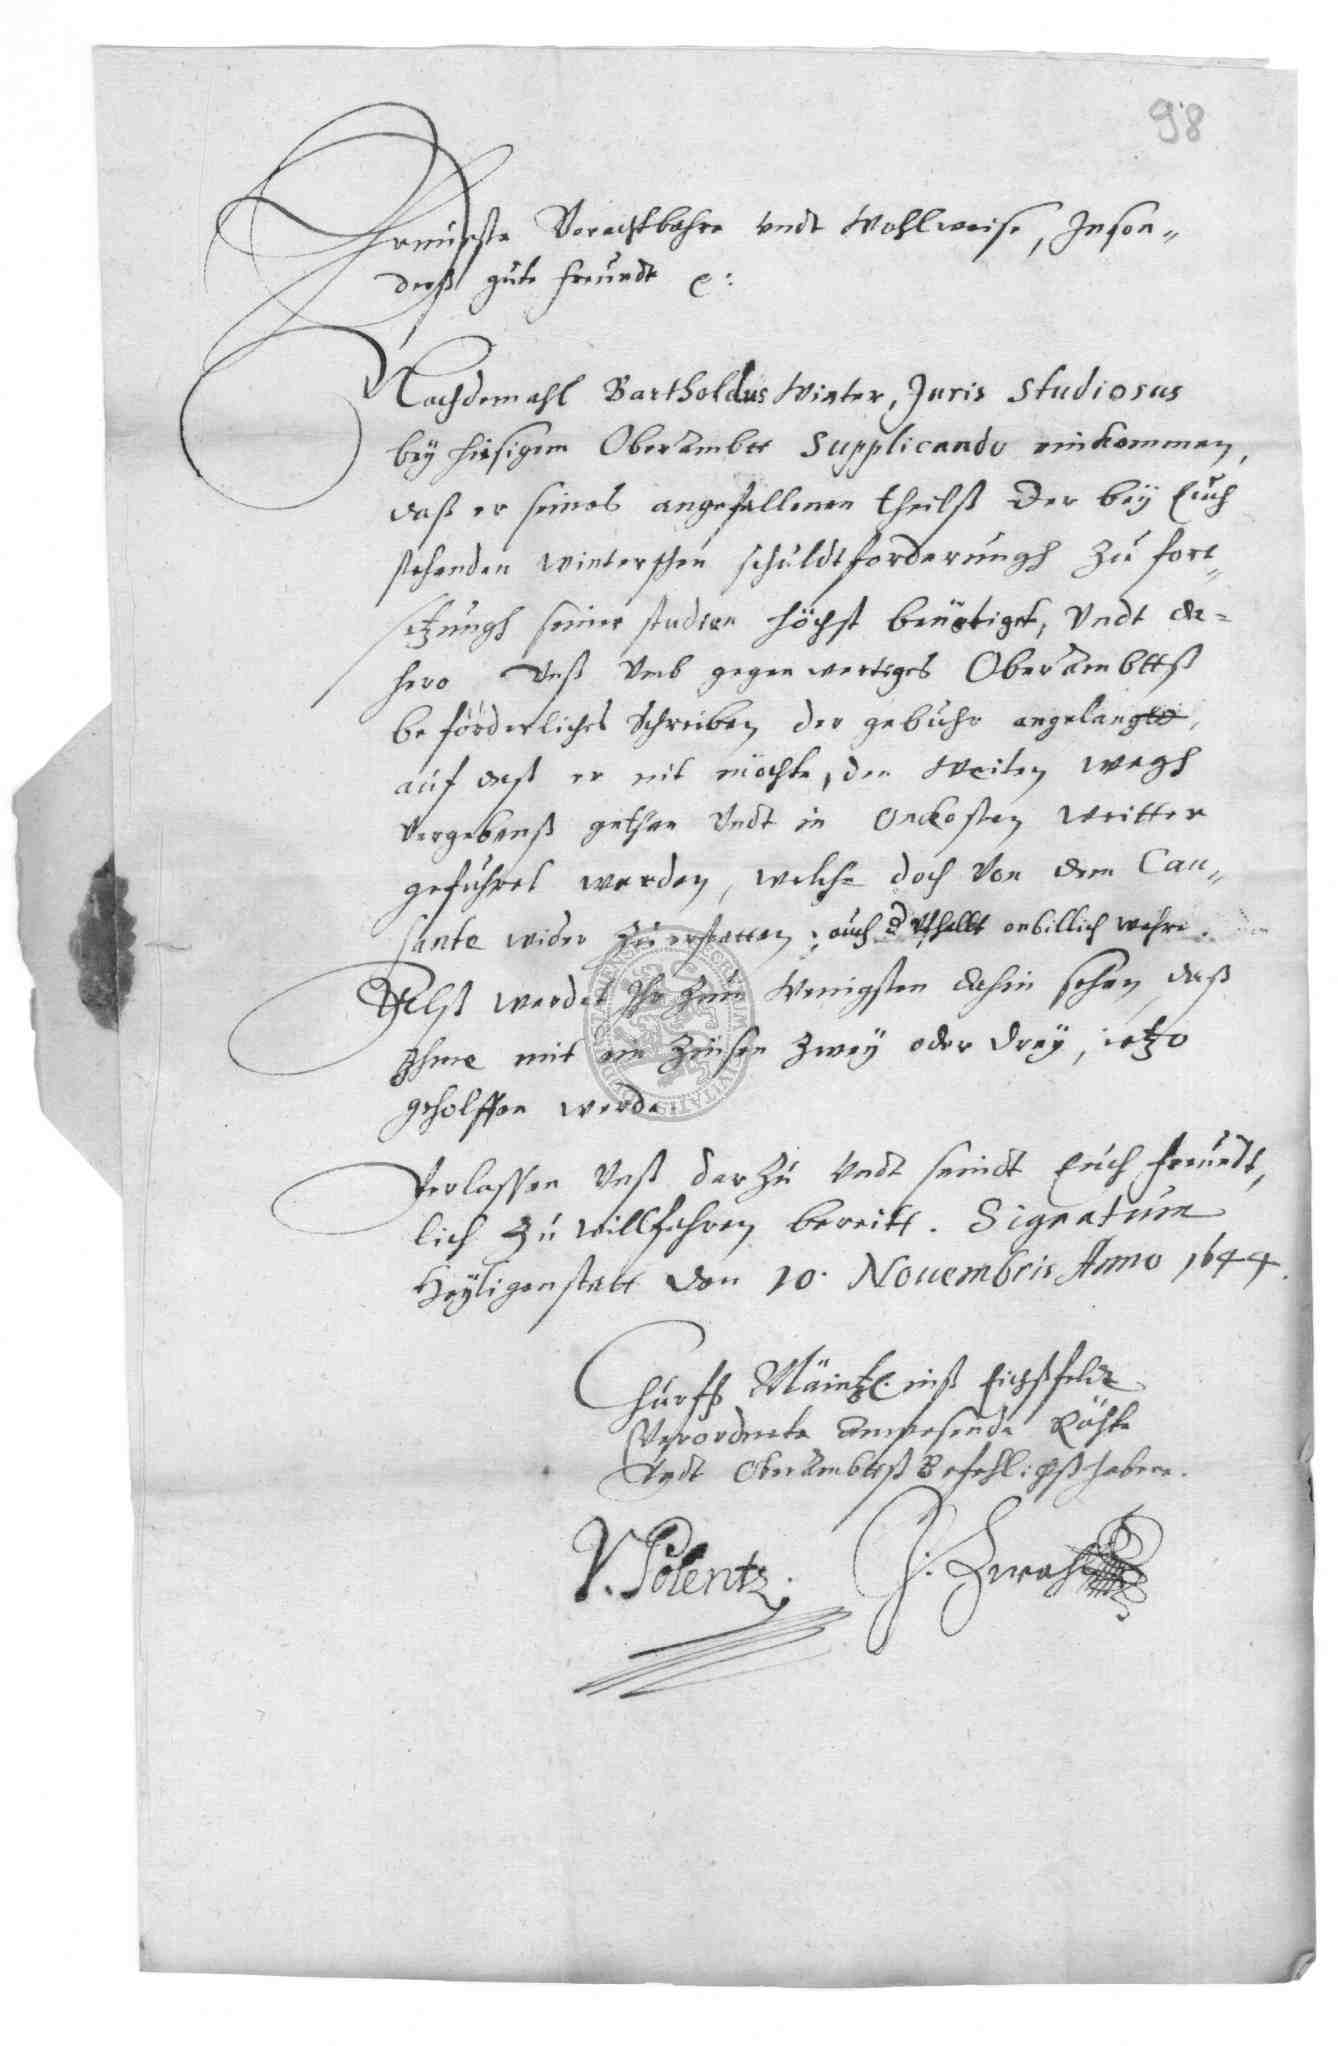 98
Ernueste Vorachtbahre Vndt Wohlweise, Inson„
derß gute freundt e:
Nachdemahl Bartholdus Winter, Juris Studiosus
beÿ hiesigem Oberambtt Supplicando einkommen,
daß er seines angefallenen theilß der beÿ Euch
stehenden Winterschen schuldtforderungh zu fort„
setzungh seiner studien höchst benötiget, Vndt da=
hero Vnß Vmb gegenwertiges Oberambttß
beförderliches Schreiben der gebuhr angelanget,
auf daß er nit möchte, den Weiten wegh
Vergebenß gethan Vndt in Onkosten weitter
geführet werden, welche doch Von dem Cau„
sante wider zu erstatten, auch onbillich wehre.
Alß werdet Ihr zum Wenigsten dahin sehen daß
Ihme mit ein Zinsen zweÿ oder dreÿ, ietzo
geholffen werde.
Verlassen Vnß darzu Vndt seindt Euch freundt„
lich zu willfahren bereitt. Signatum
Heÿligenstatt den 10. Nouembris Anno 1644.
Churfl Mäintzl. inß Eichßfeldt
Verordnete anwesende Räthe
Vndt Oberambttß Befehlichßhabere.
V. Polentz.